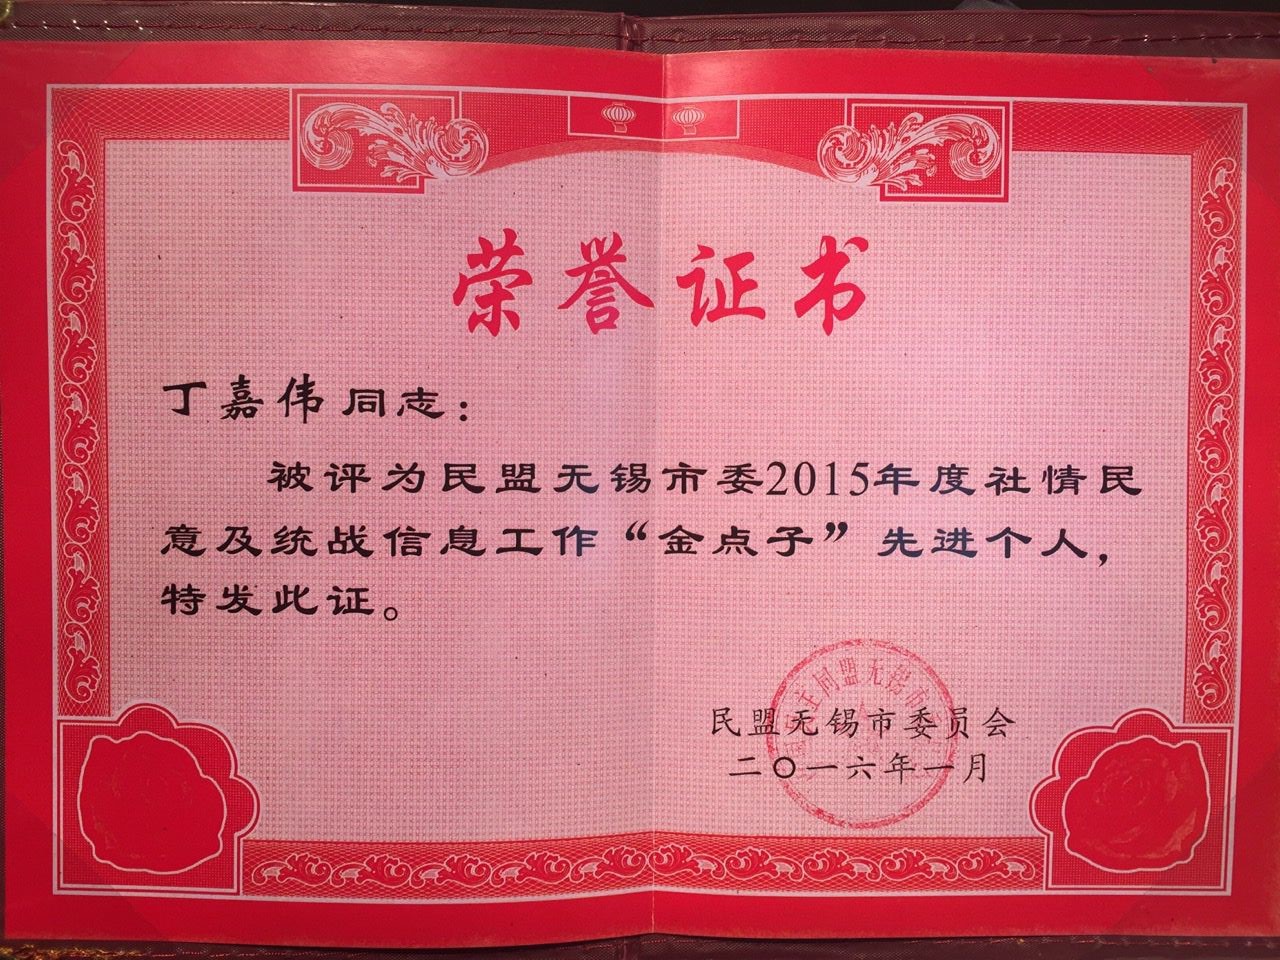 荣誉证书
丁嘉伟同志：
被评为民盟无锡市委2015年度社情民
意及统战信息工作“金点子”先进个人，
特发此证。
主同盟无锡市
民盟无锡市委员会
二〇一六年一月